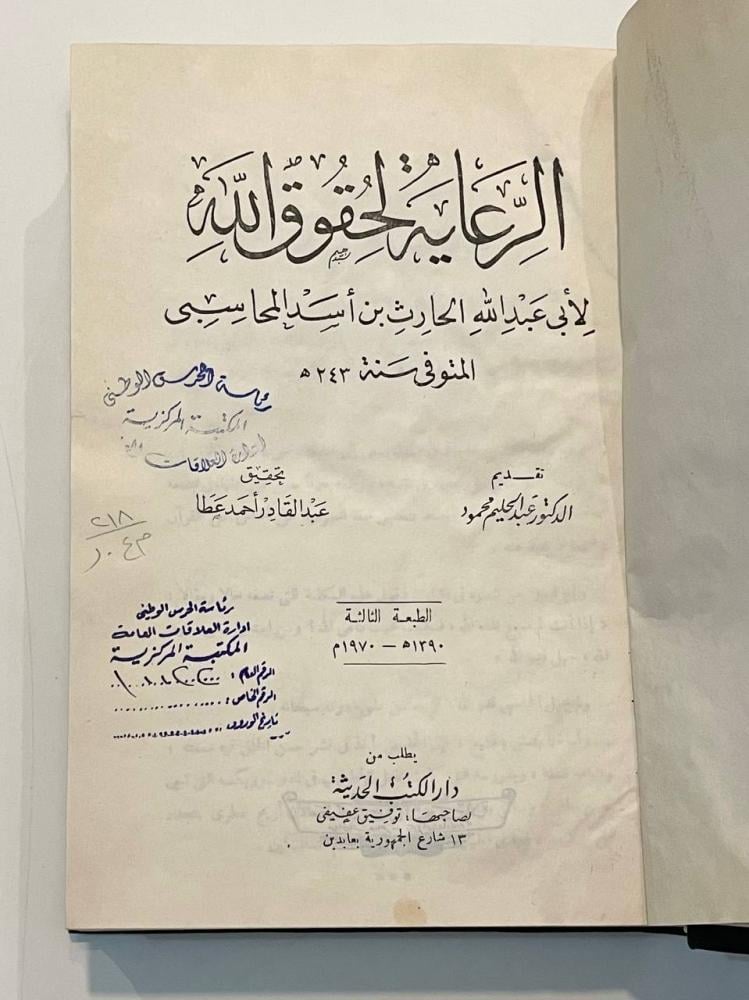 الرِّعَايَة لِحُقُوقُ اللَّهِ
لِأَبِي عَبْدِ اللهِ الحَارِثِ بن أَسَد المحَاسِبِي
المتوفى سَنة ٢٤٣ ه
رئاسة الحرس الوطني
المكتبة المركزية
ادارة العلاقات
تقـديم
الدكتور عبد الحليم محمود
تحقيق
عبد القادر أحمد عَطا
٢١٨
رئاسة الحرس الوطني
ادارة العلاقات العامة
المكتبة المركزية
الرقم العام :
الرقم الخاص :
تاريخ الورود :
الطبعة الثالثة
١٣٩٠ه — ١٩٧٠م
يطلب من
دار الكتب الحديثة
لصاحبها: توفيق عفيفى
١٣ شارع الجمهورية بعابدين